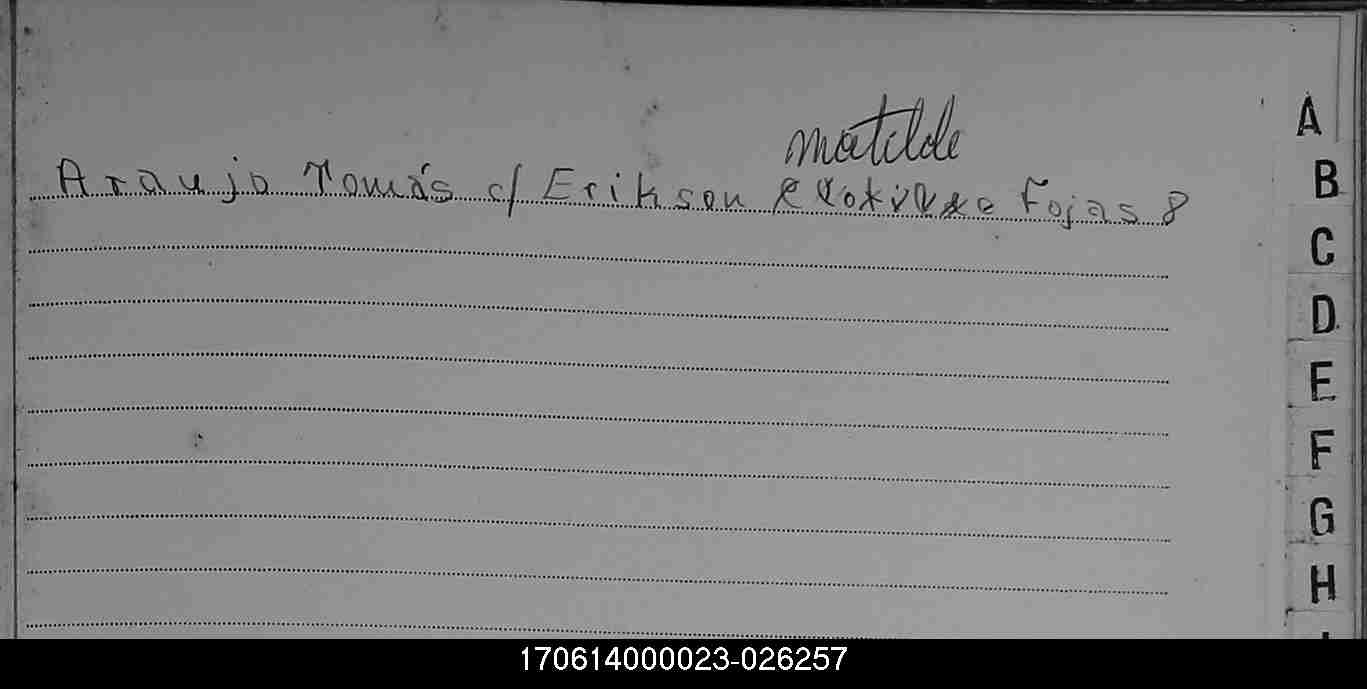 matilde
Araujo Tomás c/ Erikson Fojas 8
A
B
C
D
E
F
G
H
170614000023-026257